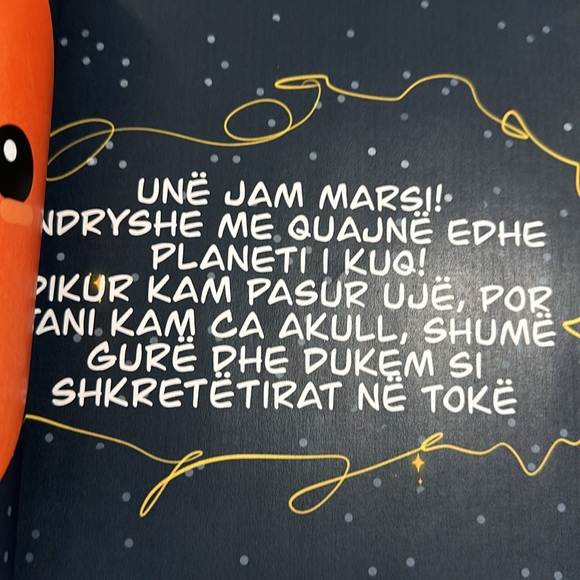 UNË JAM MARSI!
NDRYSHE ME QUAJNË EDHE
PLANETI I KUQ!
DIKUR KAM PASUR UJË, POR
TANI KAM CA AKULL, SHUMË
GURË DHE DUKEM SI
SHKRETËTIRAT NË TOKË